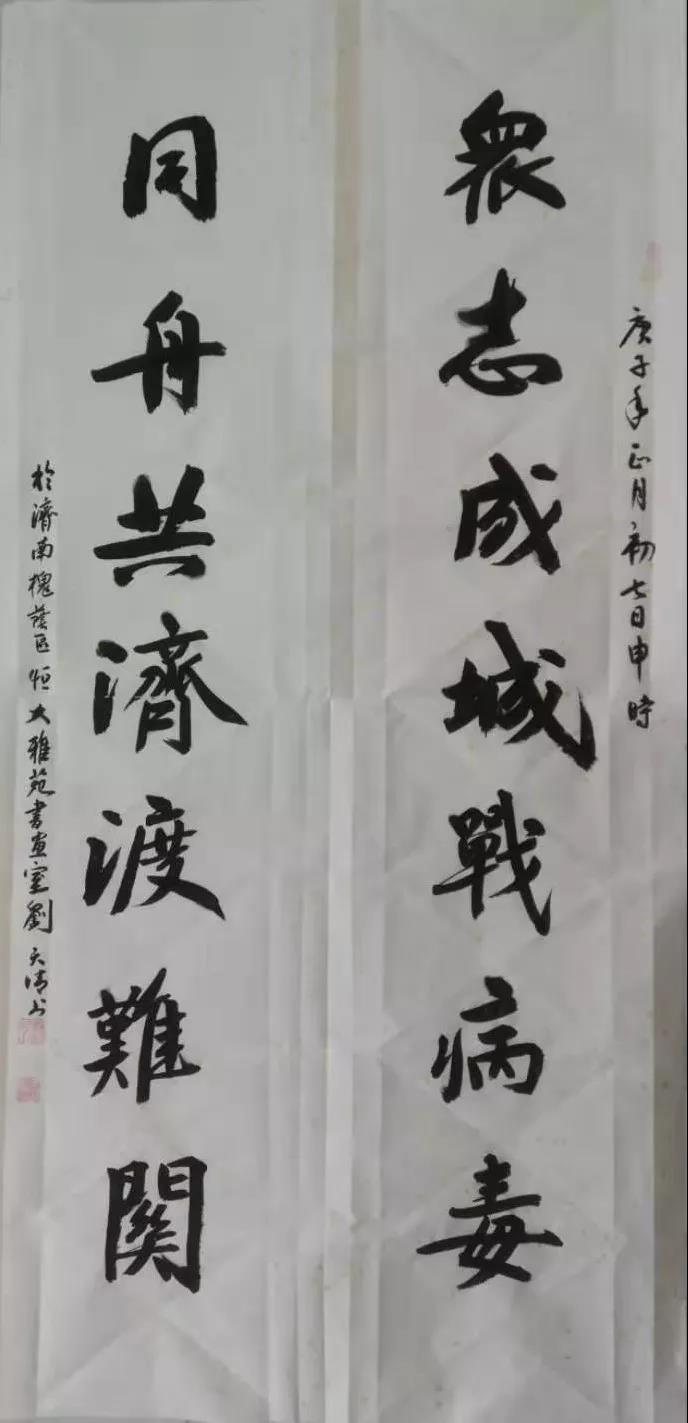 庚子年正月初七日申時
眾志成城戰病毒
同舟共濟渡難關
於濟南槐蔭区恒大雅苑書画室劉天清书